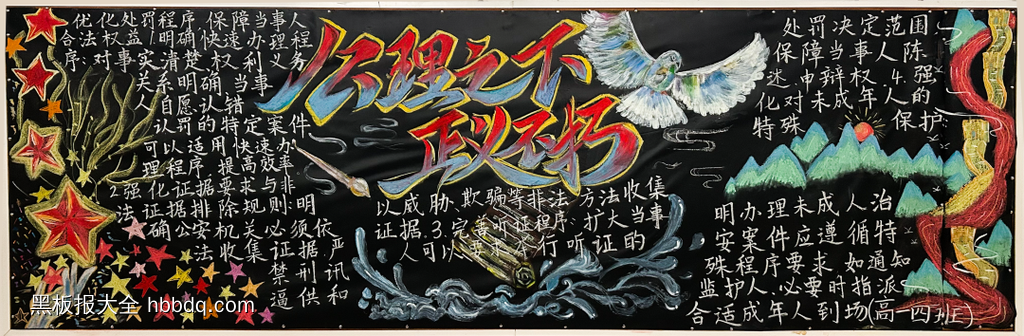 公理之下
正义不朽
优化处罚程序，保障当事人
合法权益1.明确快速办理程
序：对事实清楚、权利义务
关系明确、当事
人自愿认错
认罚的特定案件，
可以适用快速办
理程序，提高效率。
2.强化证据要求与非
法证据排除规则：明
确公安机关必须依
法收集证据，
禁刑讯
逼供和
以威胁、欺骗等非法方法收集
证据。3.完善听证程序：扩大当事
人可以要求举行听证的
处罚决定范围，
保障当事人陈
述申辩权4.强
化对未成年人的
特殊保护
明办理未成人治
安案件应遵循特
殊程序要求，如通知
监护人、必要时指派
合适成年人到场(高一四班)
黑板报大全 hbbdq.com